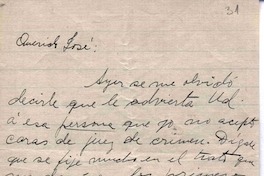 31
Querido José:
Ayer se me olvidó
decirle que le advierta Ud.
á esa persona que yo no acept
caras de juez de crimen. Dígale
que se fije mucho en el trato que